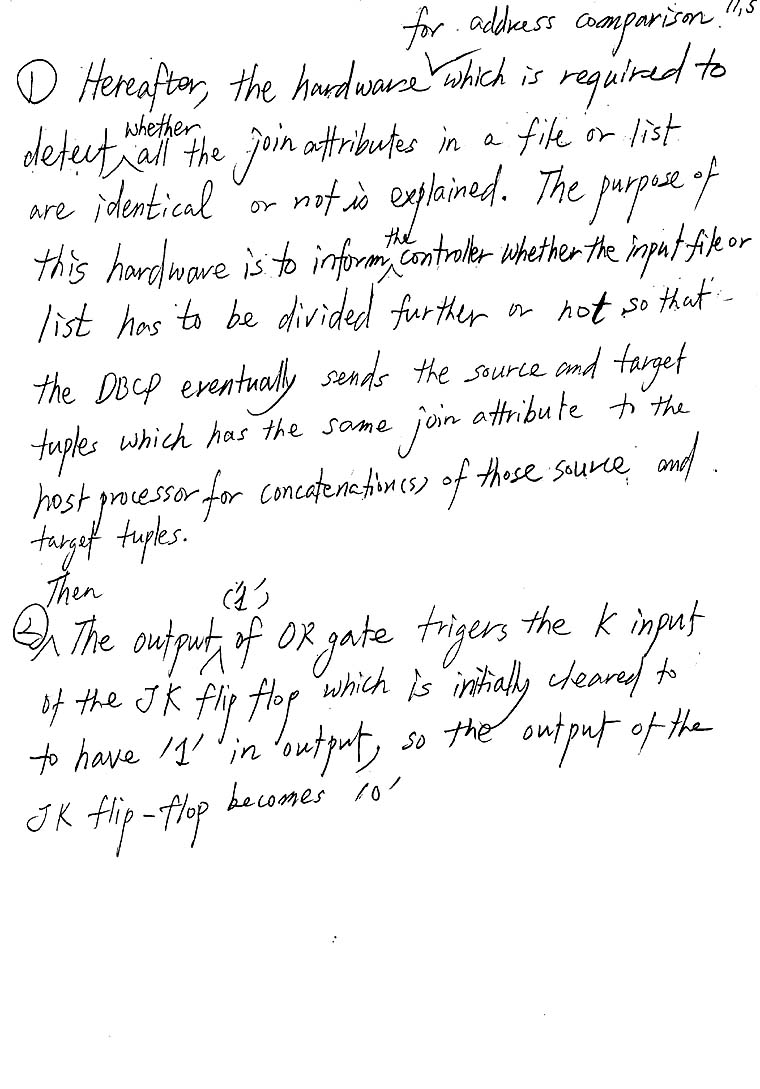 for address comparison 11,5
① Hereafter, the hardware ✓ which is required to
whether
detect ^ all the join attributes in a file or list
are identical or not is explained. The purpose of
the
this hardware is to inform ^ controller whether the input file or
list has to be divided further or not so that
the DBCP eventually sends the source and target
tuples which has the same join attribute to the
host processor for concatenation(s) of those source and
target tuples.
Then ('1')
② ^ The output ^ of OR gate trigers the K input
of the JK flip flop which is initially cleared to
to have '1' in output, so the output of the
JK flip-flop becomes '0'